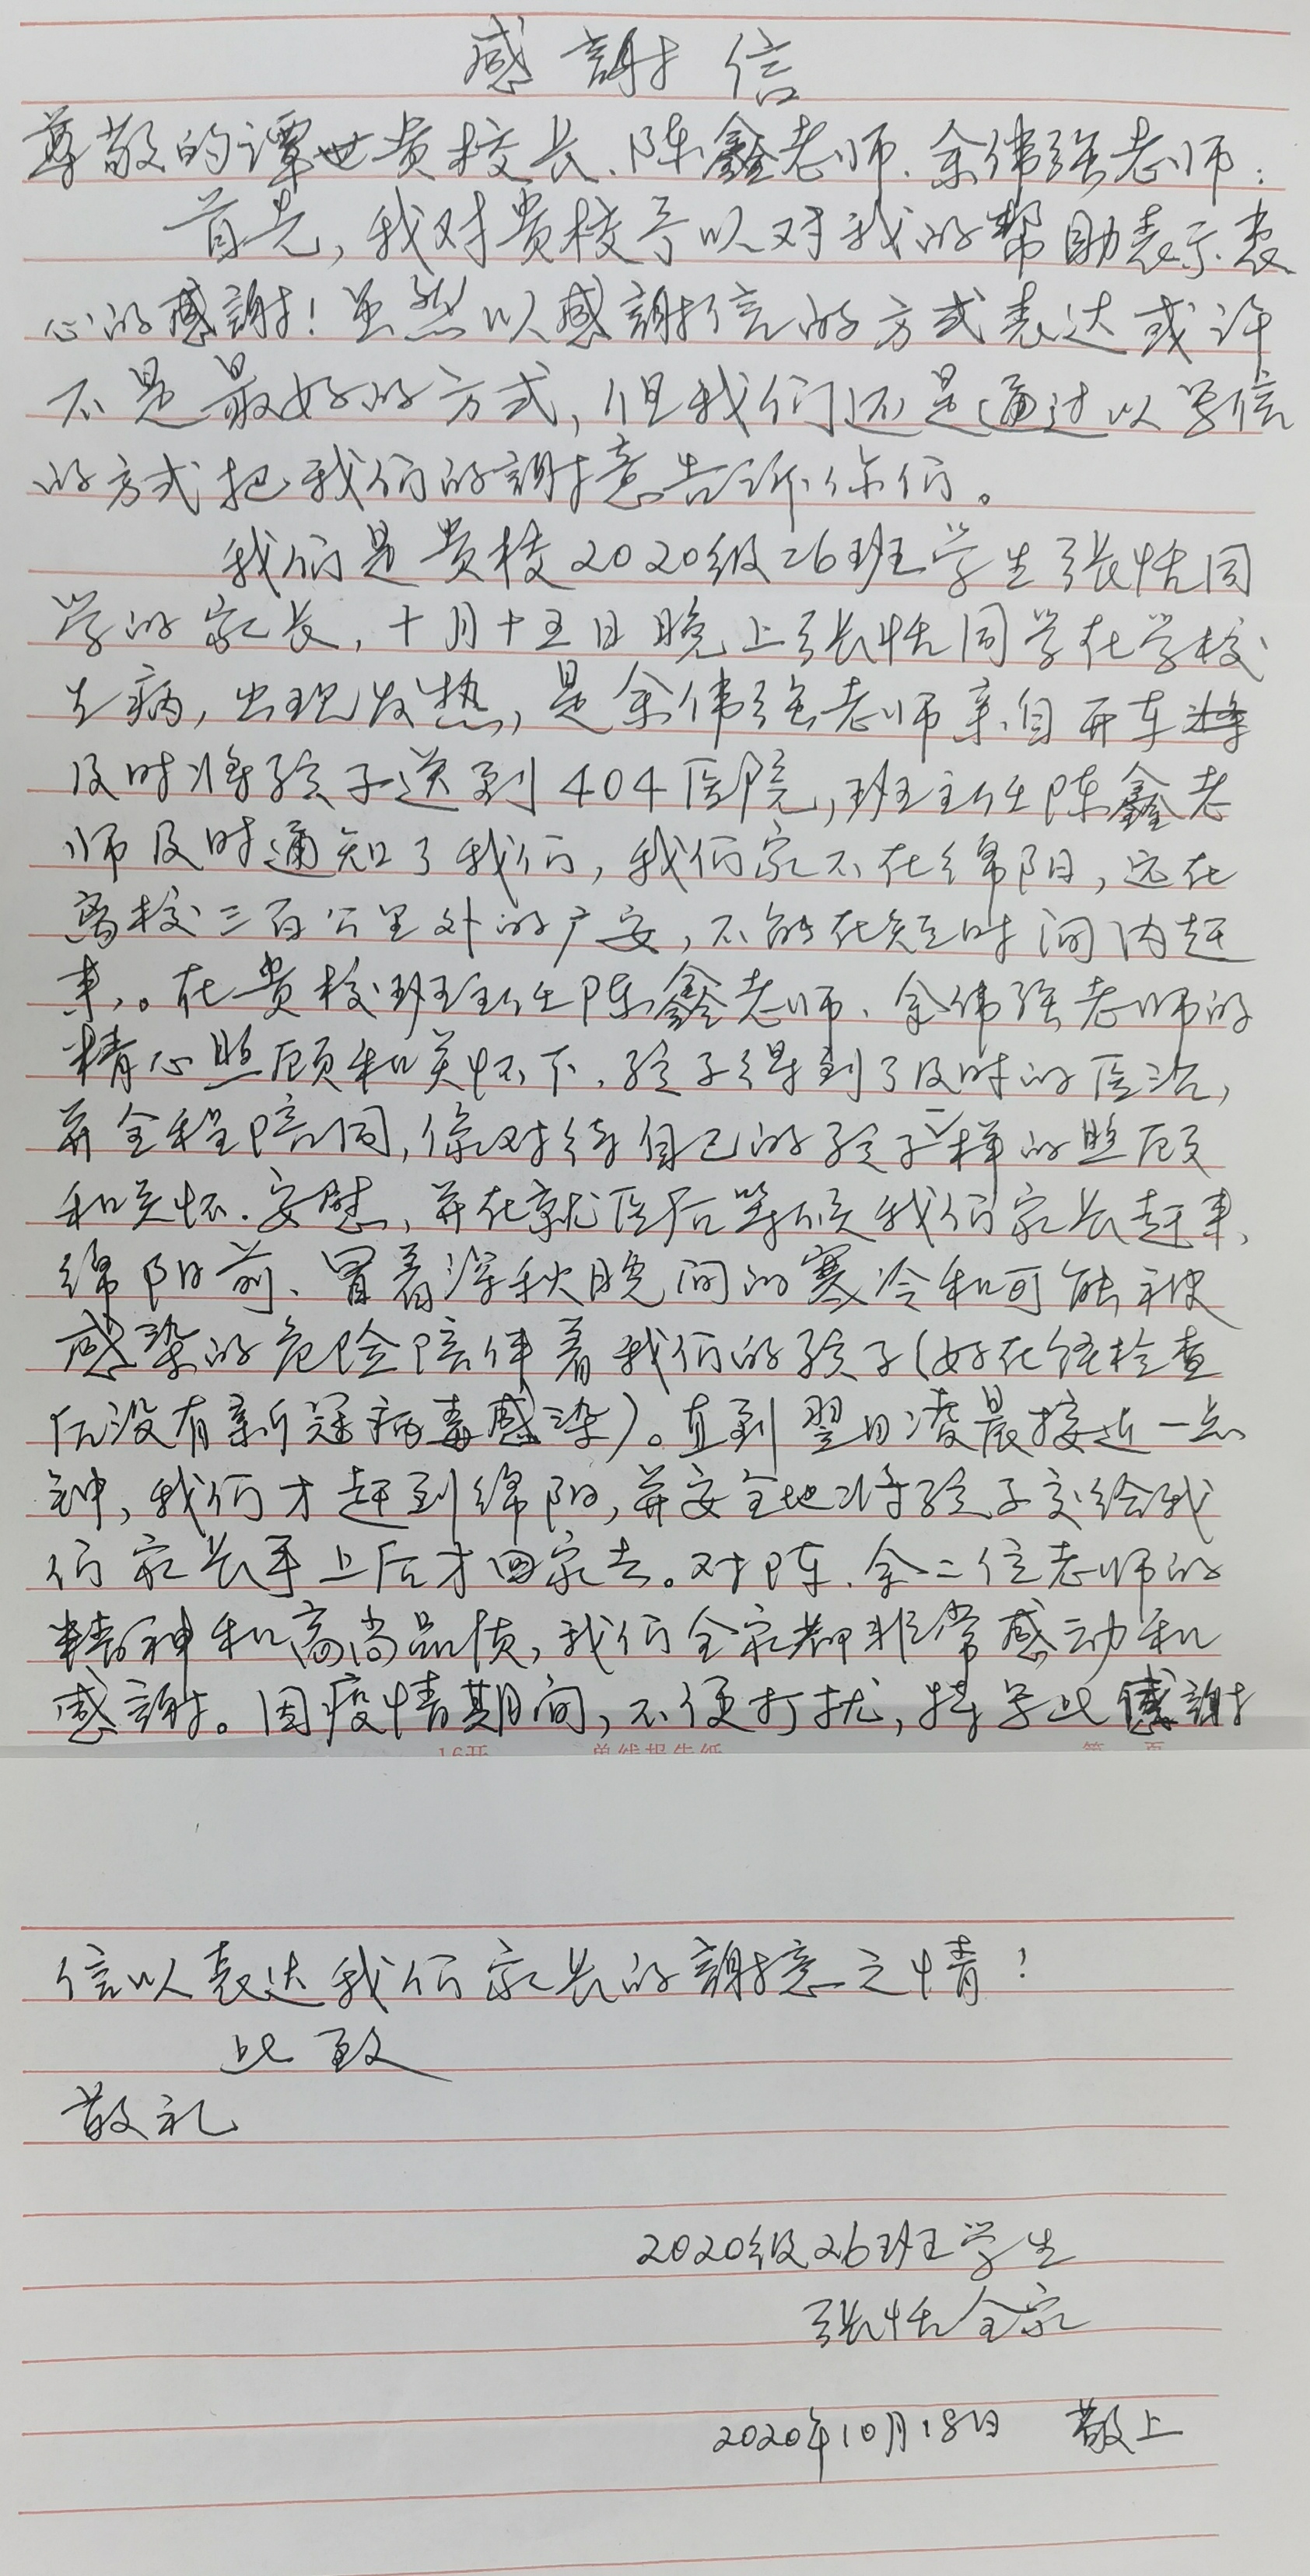 感謝信
尊敬的谭世贵校长、陈鑫老师、余伟强老师:
首先,我对贵校予以对我的帮助表示衷
心的感謝!虽然以感謝信的方式表达或许
不是最好的方式,但我们还是通过以写信
的方式把我们的謝意告诉你们。
我们是贵校2020级26班学生张恬同
学的家长,十月十五日晚上张恬同学在学校
生病,出现发热,是余伟强老师亲自开车
及时将孩子送到404医院,班主任陈鑫老
师及时通知了我们,我们家不在绵阳,远在
离校三百公里外的广安,不能在短时间内赶
来。在贵校班主任陈鑫老师、余伟强老师的
精心照顾和关怀下,孩子得到了及时的医治,
并全程陪同,像对待自己的孩子一样的照顾
和关怀、安慰,并在就医后等候我们家长赶来
绵阳前、冒着深秋晚间的寒冷和可能被
感染的危险陪伴着我们的孩子(好在经检查
后没有新冠病毒感染)。直到翌日凌晨接近一点
钟,我们才赶到绵阳,并安全地将孩子交给我
们家长手上后才回家去。对陈、余二位老师的
精神和高尚品质,我们全家都非常感动和
感謝。因疫情期间,不便打扰,特写此感謝
16开 单线报告纸 第 页
信以表达我们家长的謝意之情!
此致
敬礼
2020级26班学生
张恬全家
2020年10月18日 敬上